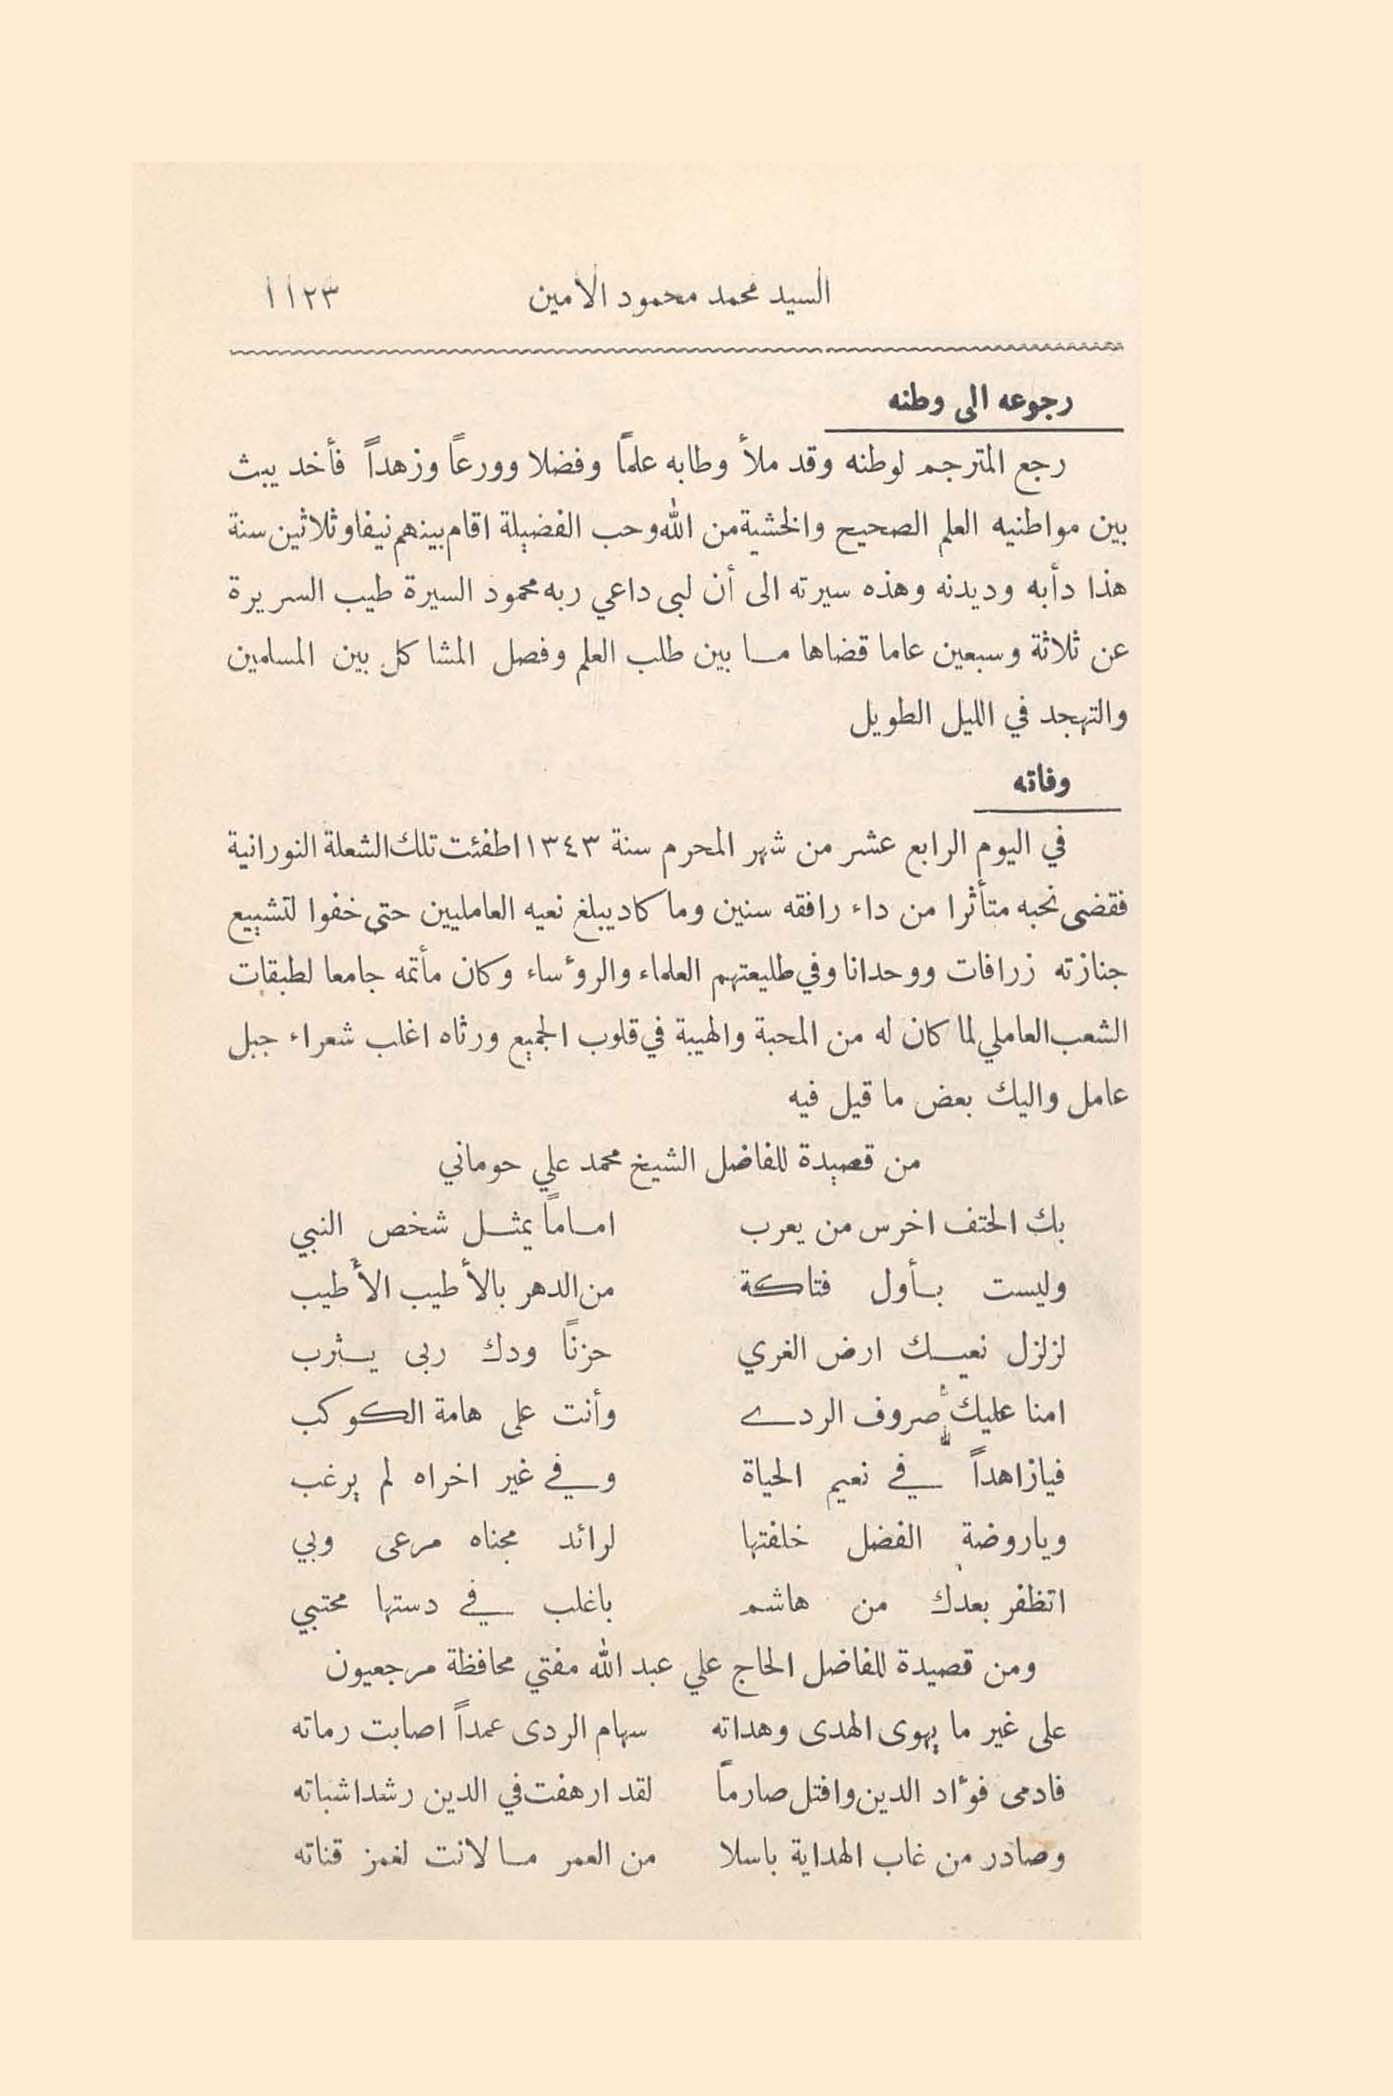 السيد محمد محمود الامين ١١٢٣
رجوعه الى وطنه
رجع المترجم لوطنه وقد ملأ وطابه علماً وفضلا وورعاً وزهداً فأخد يبث
بين مواطنيه العلم الصحيح والخشية من الله وحب الفضيلة اقام بينهم نيفا وثلاثين سنة
هذا دأبه وديدنه وهذه سيرته الى أن لبى داعي ربه محمود السيرة طيب السريرة
عن ثلاثة وسبعين عاما قضاها ما بين طلب العلم وفصل المشاكل بين المسلمين
والتهجد في الليل الطويل
وفاته
في اليوم الرابع عشر من شهر المحرم سنة ١٣٤٣ اطفئت تلك الشعلة النورانية
فقضى نحبه متأثرا من داء رافقه سنين وما كاد يبلغ نعيه العامليين حتى خفوا لتشييع
جنازته زرافات ووحدانا وفي طليعتهم العلماء والروٴساء وكان مأتمه جامعا لطبقات
الشعب العاملي لما كان له من المحبة والهيبة في قلوب الجميع ورثاه اغلب شعراء جبل
عامل واليك بعض ما قيل فيه
من قصيدة للفاضل الشيخ محمد علي حوماني
بك الحتف اخرس من يعرب اماماً يمثل شخص النبي
وليست بأول فتاكة من الدهر بالأطيب الأطيب
لزلزل نعيك ارض الغري حزناً ودك ربى يثرب
امنا عليك صروف الردے وأنت على هامة الكوكب
فيازاهداً في نعيم الحياة وفي غير اخراه لم يرغب
وياروضة الفضل خلفتها لرائد مجناه مرعى وبي
اتظفر بعدك من هاشم باغلب في دستها محتبي
ومن قصيدة للفاضل الحاج علي عبد الله مفتي محافظة مرجعيون
على غير ما يهوى الهدى وهداته سهام الردى عمداً اصابت رماته
فادمى فوٴاد الدين وافتل صارماً لقد ارهفت في الدين رشدا شباته
وصادر من غاب الهداية باسلا من العمر ما لانت لغمز قناته